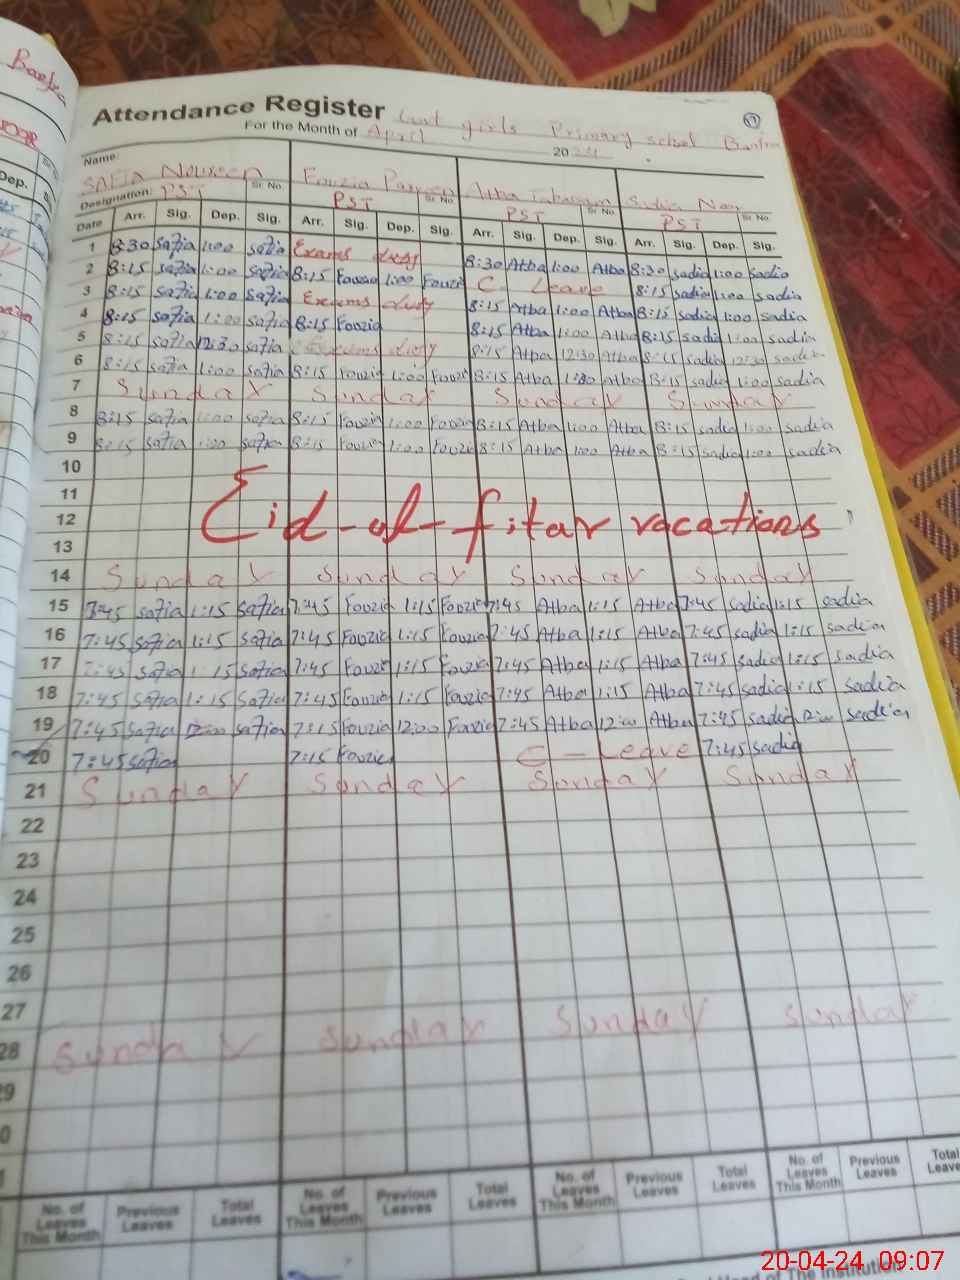 Attendance Register Govt girls Primary school
For the Month of April 2024
Name: SAFIA Noureen Fouzia Parveen Atba Tabassum Sadia Noor
Designation: PST Sr. No. PST Sr. No. PST Sr. No. PST Sr. No.
Date Arr. Sig. Dep. Sig. Arr. Sig. Dep. Sig. Arr. Sig. Dep. Sig. Arr. Sig. Dep. Sig.
1 8:30 safia 1:00 safia Exams duty 8:30 Atba 1:00 Atba 8:30 sadia 1:00 sadia
2 8:15 safia 1:00 safia 8:15 Fouzia 1:00 Fouzia C- Leave 8:15 sadia 1:00 sadia
3 8:15 safia 1:00 safia Exams duty 8:15 Atba 1:00 Atba 8:15 sadia 1:00 sadia
4 8:15 safia 1:00 safia 8:15 Fouzia 8:15 Atba 1:00 Atba 8:15 sadia 1:00 sadia
5 8:15 safia 12:30 safia Exams duty 8:15 Atba 12:30 Atba 8:15 sadia 12:30 sadia
6 8:15 safia 1:00 safia 8:15 Fouzia 1:00 Fouzia 8:15 Atba Atba 8:15 sadia 1:00 sadia
7 Sunday Sunday Sunday Sunday
8 8:15 safia 1:00 safia 8:15 Fouzia 1:00 Fouzia 8:15 Atba 1:00 Atba 8:15 sadia 1:00 sadia
9 8:15 safia 1:00 safia 8:15 Fouzia 1:00 Fouzia 8:15 Atba 1:00 Atba 8:15 sadia 1:00 sadia
10
11
12 Eid-ul-fitar vacations
13
14 Sunday Sunday Sunday Sunday
15 7:45 safia 1:15 safia 7:45 Fouzia 1:15 Fouzia 7:45 Atba 1:15 Atba 7:45 sadia 1:15 sadia
16 7:45 safia 1:15 safia 7:45 Fouzia 1:15 Fouzia 7:45 Atba 1:15 Atba 7:45 sadia 1:15 sadia
17 7:45 safia 1:15 safia 7:45 Fouzia 1:15 Fouzia 7:45 Atba 1:15 Atba 7:45 sadia 1:15 sadia
18 7:45 safia 1:15 safia 7:45 Fouzia 1:15 Fouzia 7:45 Atba 1:15 Atba 7:45 sadia 1:15 sadia
19 7:45 safia 12:00 safia 7:15 Fouzia 12:00 Fouzia 7:45 Atba 12:00 Atba 7:45 sadia 12:00 sadia
20 7:45 safia 7:15 Fouzia C- Leave 7:45 sadia
21 Sunday Sunday Sunday Sunday
22
23
24
25
26
27
28 Sunday Sunday Sunday Sunday
No. of Leaves This Month Previous Leaves Total Leaves No. of Leaves This Month Previous Leaves Total Leaves No. of Leaves This Month Previous Leaves Total Leaves No. of Leaves This Month Previous Leaves Total
Head of The Institution
20-04-24 09:07